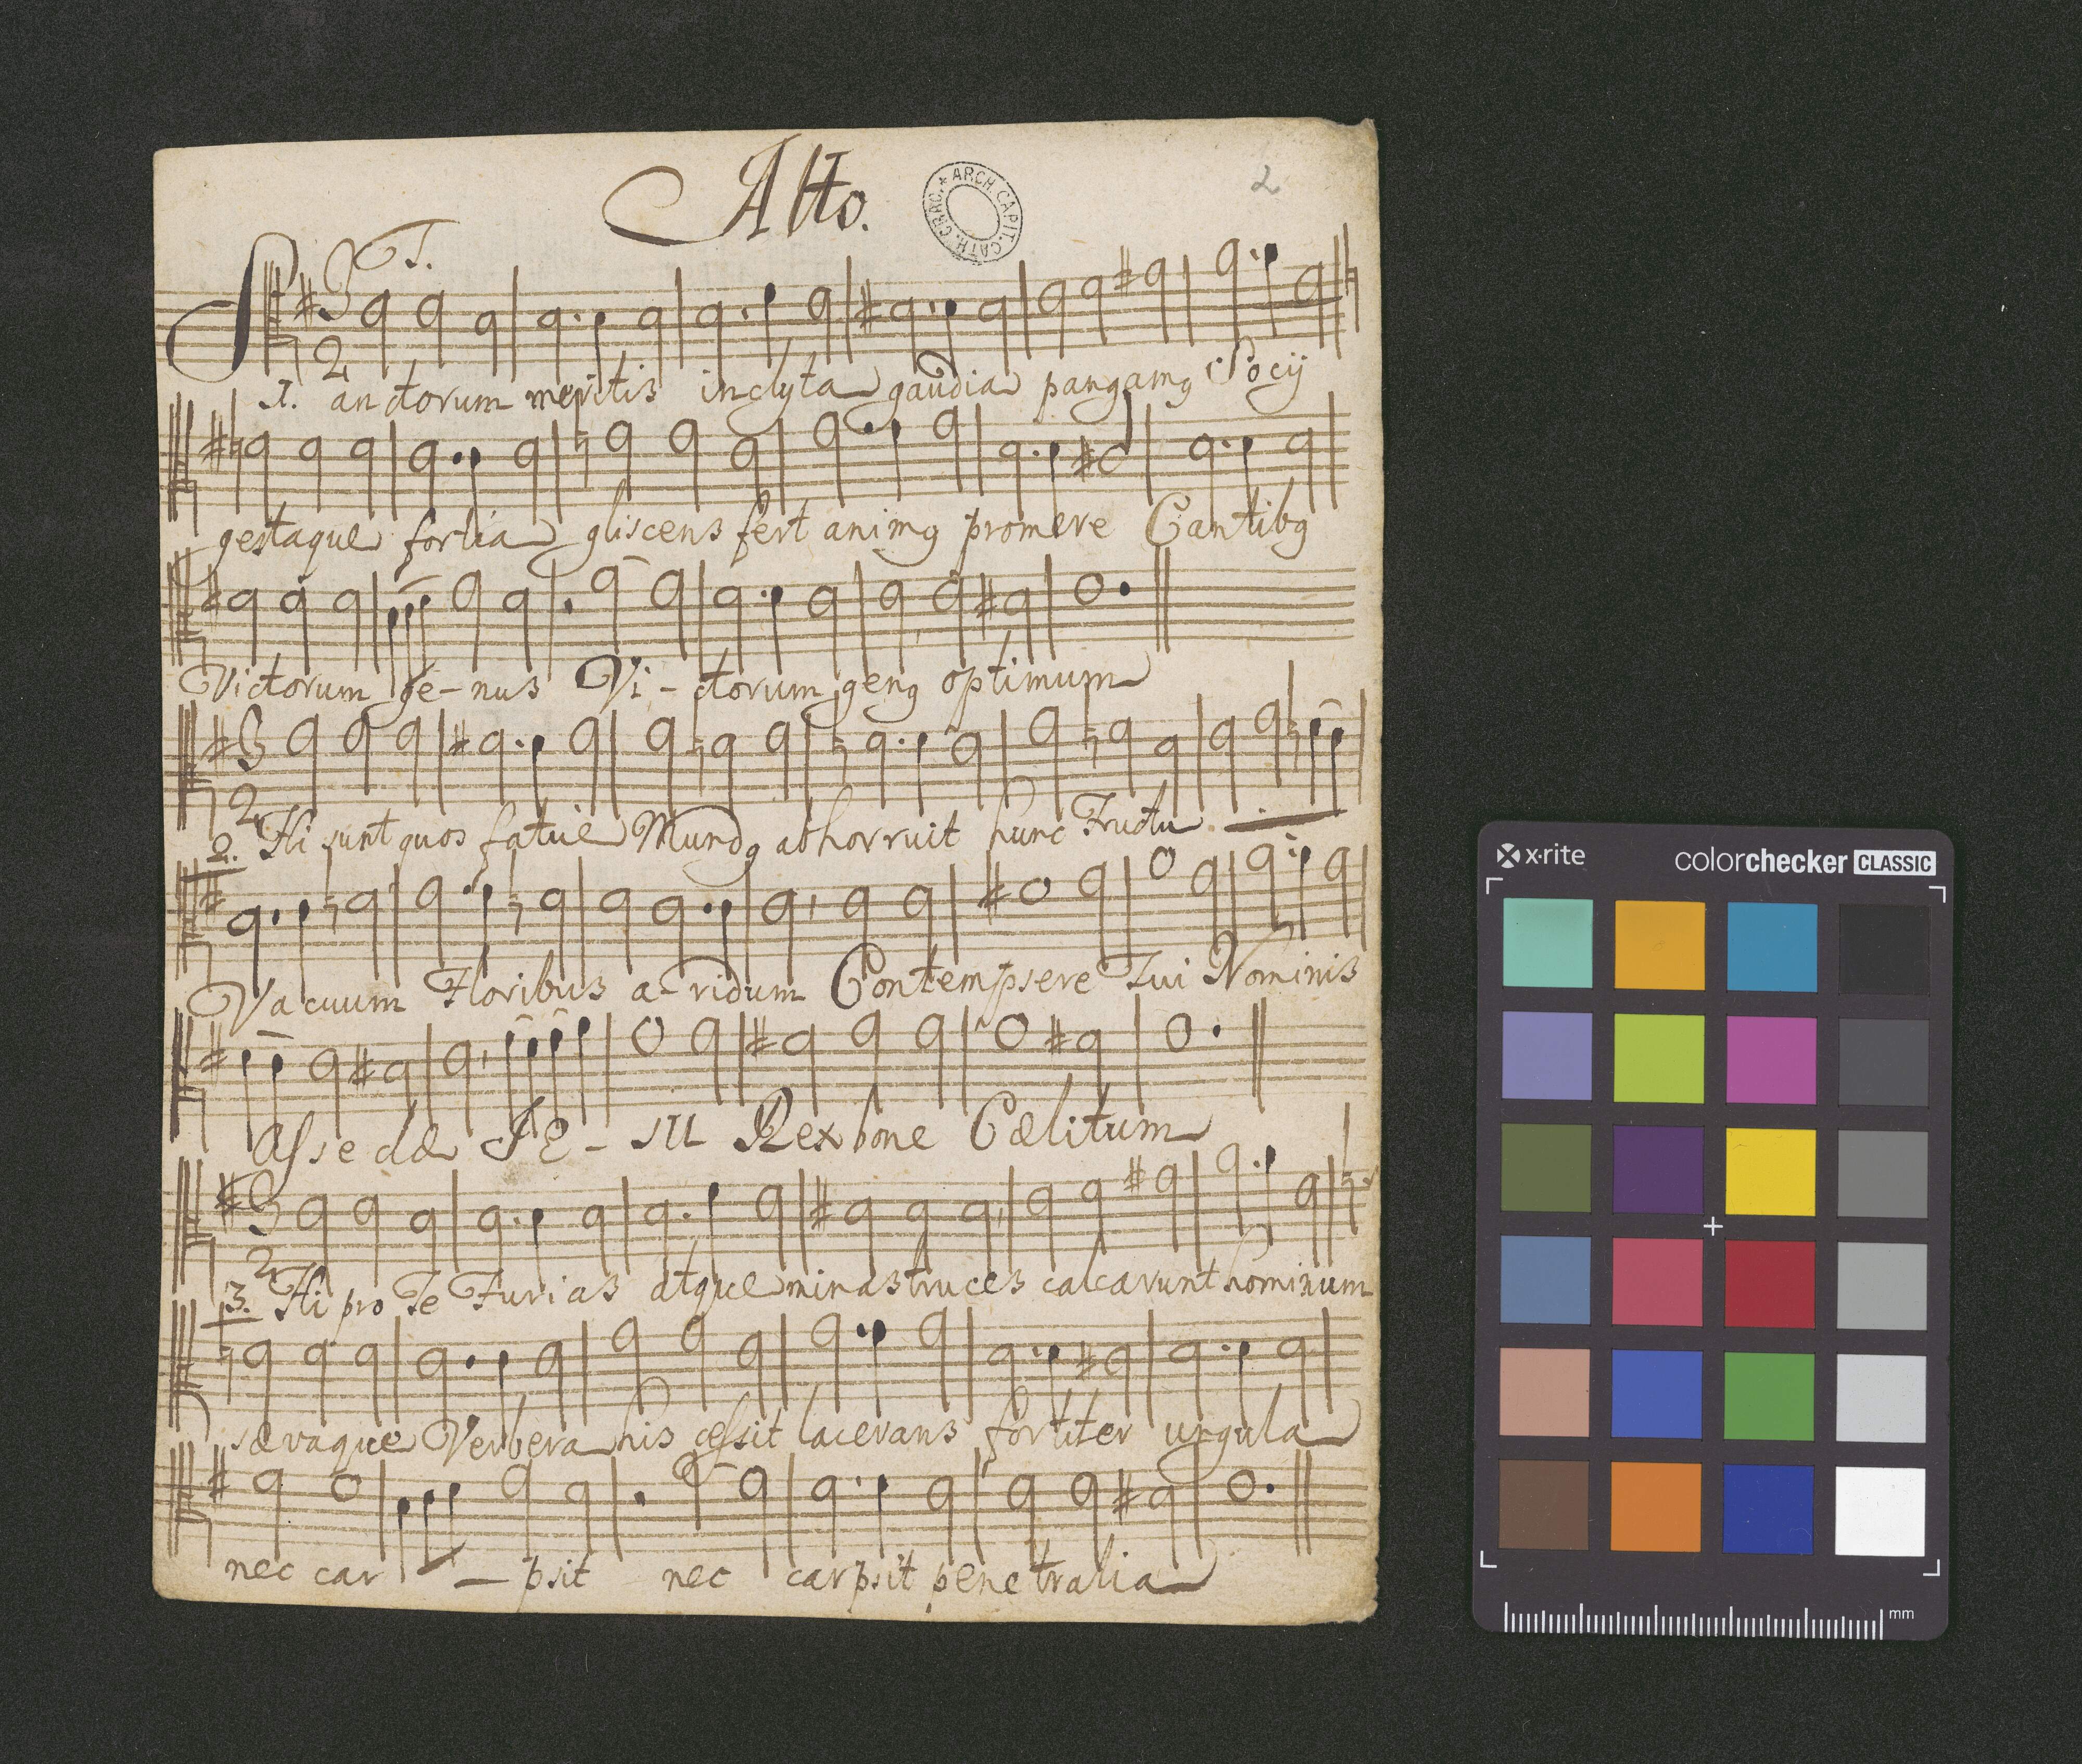 Alto.
ARCH. CAPIT. CATH. CRAC.
2
T.
S
3
2
1. anctorum meritis inclyta gaudia pangamg Socij
gestaque fortia gliscens fert animg promere Cantibg
Victorum ge-nus Vi-ctorum geng optimum
3
2
2. Hi sunt quos fatue Mundg abhorruit hunc Fructu
Vacuum Floribus a-ridum Contempsere Tui Nominis
Asseclæ JE-SU Rex bone Cælitum
3
2
3. Hi pro Te Furias atque minas truces calcarunt hominum
sævaque Verbera his cessit lacerans fortiter ungula
nec car - psit nec carpsit penetralia
x-rite
colorchecker CLASSIC
mm